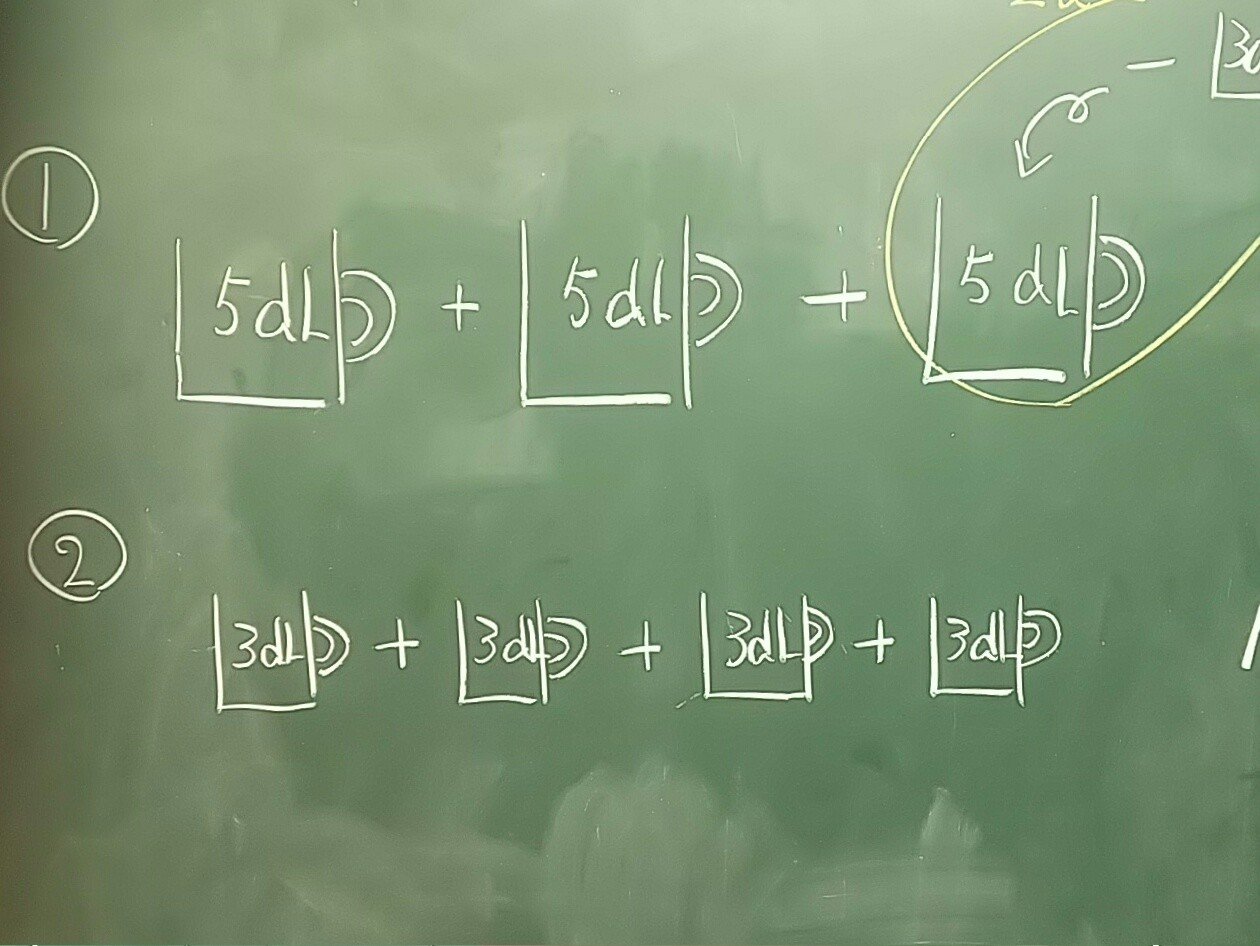 - 3d
①
5dL + 5dL + 5dL
②
3dL + 3dL + 3dL + 3dL